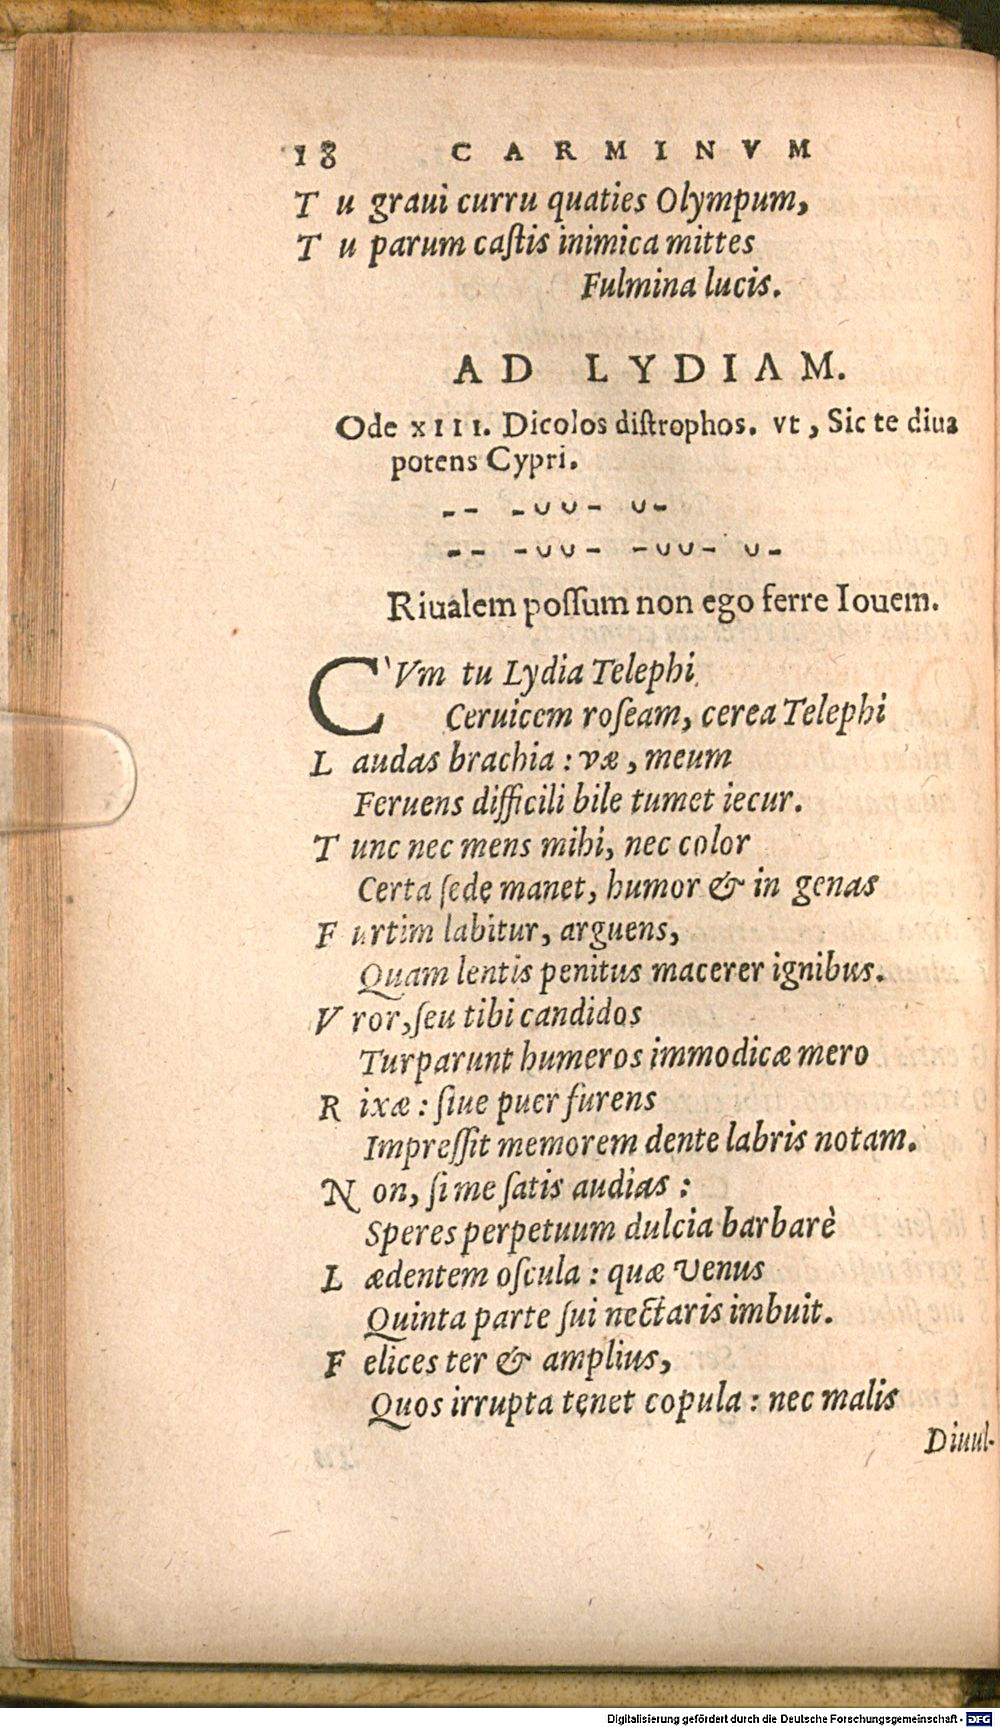 18 CARMINVM
Tu graui curru quaties Olympum,
Tu parum caſtis inimica mittes
Fulmina lucis.
AD LYDIAM.
Ode XIII. Dicolos diſtrophos. vt, Sic te diua
potens Cypri.
-- -υυ- υ-
-- -υυ- -υυ- υ-
Riualem poſſum non ego ferre Iouem.
CVm tu Lydia Telephi
Ceruicem roſeam, cerea Telephi
Laudas brachia: væ, meum
Feruens difficili bile tumet iecur.
Tunc nec mens mihi, nec color
Certa ſede manet, humor & in genas
Furtim labitur, arguens,
Quam lentis penitus macerer ignibus.
Vror, ſeu tibi candidos
Turparunt humeros immodicæ mero
Rixæ: ſiue puer furens
Impreſſit memorem dente labris notam.
Non, ſi me ſatis audias:
Speres perpetuum dulcia barbarè
Lædentem oſcula: quæ Venus
Quinta parte ſui nectaris imbuit.
Felices ter & amplius,
Quos irrupta tenet copula: nec malis
Diuul-
Digitalisierung gefördert durch die Deutsche Forschungsgemeinschaft - DFG